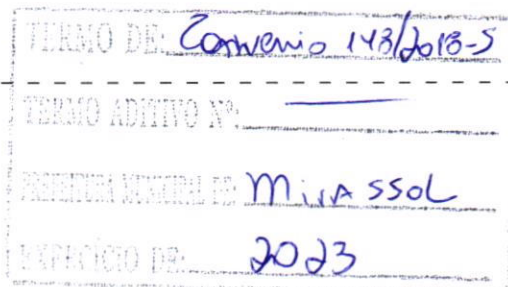 TERMO DE: Convenio 143/2013-S
TERMO ADITIVO Nº:
PREFEITURA MUNICIPAL DE: MirASSOL
EXERCÍCIO DE: 2023